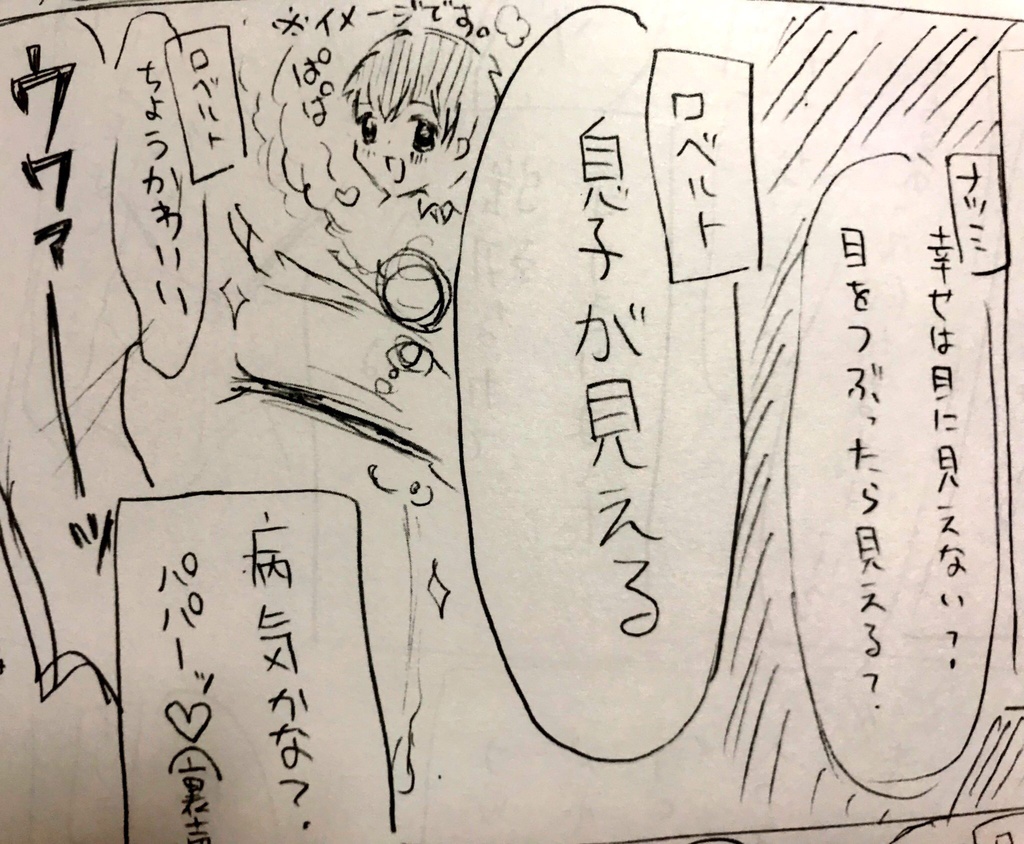 ナッミ
幸せは目に見えない?
目をつぶったら見える?
ロベルト
息子が見える
※イメージです。
ぱぱ
ロベルト
ちょうかわいい
病気かな?
パパーッ♡
ウワァーーッ